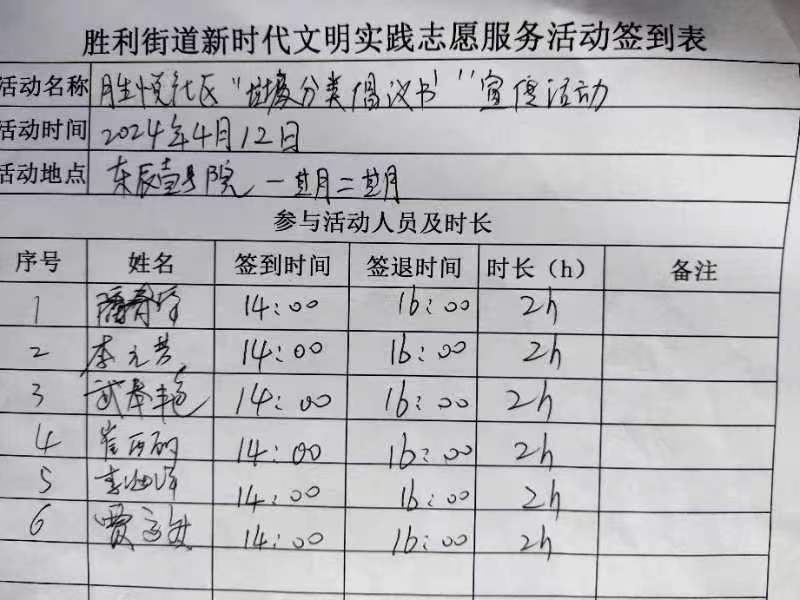 胜利街道新时代文明实践志愿服务活动签到表
活动名称 胜悦社区“垃圾分类倡议书”宣传活动
活动时间 2024年4月12日
活动地点 东辰壹号院 一期二期
参与活动人员及时长
序号 姓名 签到时间 签退时间 时长（h） 备注
1 14:00 16:00 2h
2 李元芳 14:00 16:00 2h
3 武春艳 14:00 16:00 2h
4 14:00 16:00 2h
5 李海洋 14:00 16:00 2h
6 贾 14:00 16:00 2h